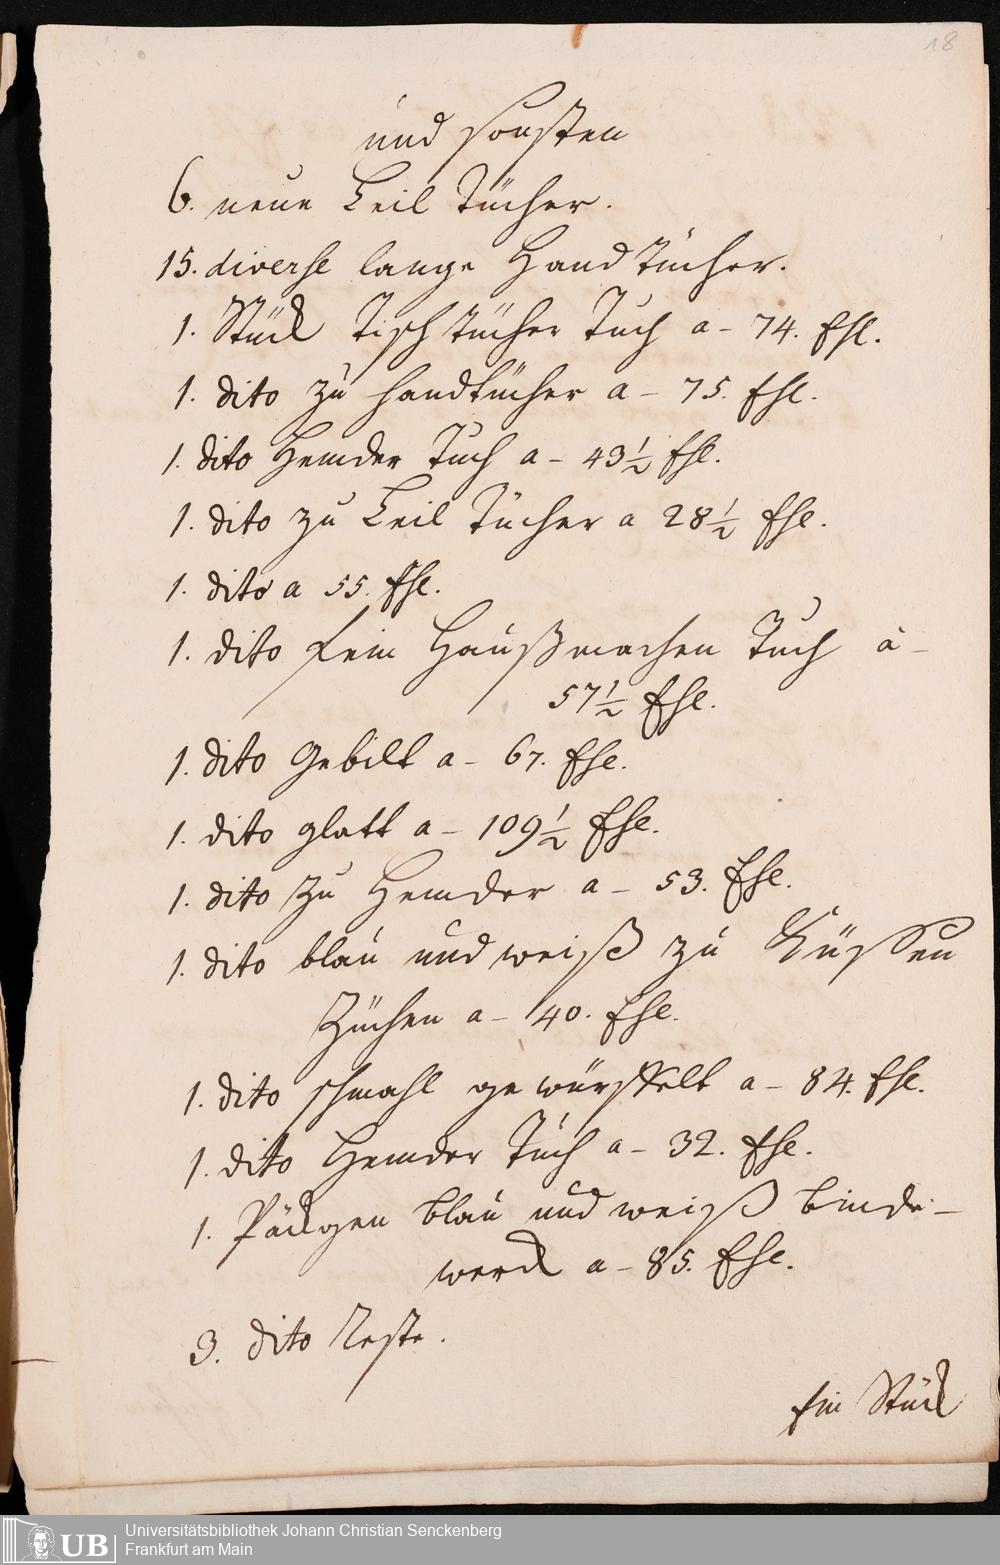 18
und sonsten
6. neue Leil Tücher.
15. diverse lange Handtücher.
1. Stück Tischtücher Tuch a - 74. Ehl.
1. dito zu handtücher a - 75. Ehl.
1. dito Hemder Tuch a - 43 1/2 Ehl.
1. dito zu Leil Tücher a 28 1/2 Ehl.
1. dito a 55. Ehl.
1. dito fein Haußmachen Tuch a -
57 1/2 Ehl.
1. dito Gebilt a - 67. Ehl.
1. dito glatt a - 109 1/2 Ehl.
1. dito zu Hemder a - 53. Ehl.
1. dito blau und weiß zu Küssen
Züchen a - 40. Ehl.
1. dito schmahl gewürffelt a - 84. Ehl.
1. dito Hemder Tuch a - 32. Ehl.
1. Päckgen blau und weiß binde-
werck a - 85. Ehl.
3. dito Reste.
Ein Stück
UB Universitätsbibliothek Johann Christian Senckenberg
Frankfurt am Main